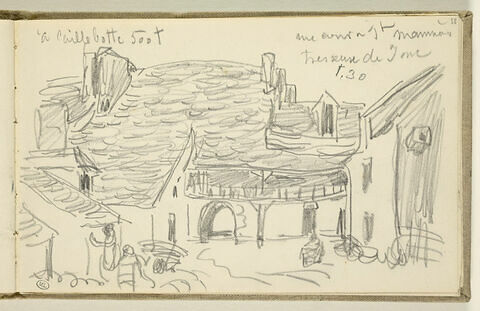 à Caillebotte 500 f
une cour à St Mammès
tresseuse de Jonc
f. 30